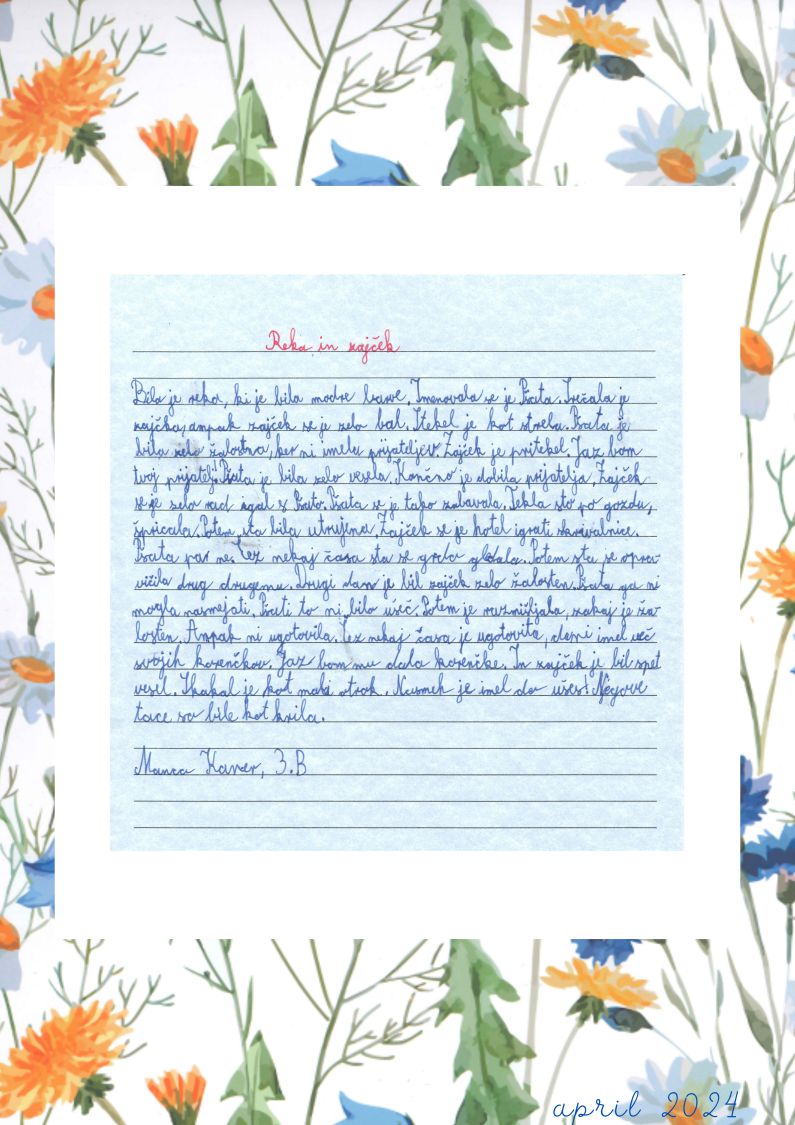 Reka in zajček
Bila je reka, ki je bila modre barve. Imenovala se je Pšata. Srečala je
zajčka, ampak zajček se je zelo bal. Stekel je kot strela. Pšata je
bila zelo žalostna, ker ni imela prijateljev. Zajček je pritekel. Jaz bom
tvoj prijatelj! Pšata je bila zelo vesela. Končno je dobila prijatelja. Zajček
se je zelo rad igral s Pšato. Pšata se je tako zabavala. Tekla sta po gozdu,
špricala. Potem sta bila utrujena. Zajček se je hotel igrati skrivalnice.
Pšata pa ne. Čez nekaj časa sta se grdo gledala. Potem sta se opra-
vičila drug drugemu. Drugi dan je bil zajček zelo žalosten. Pšata ga ni
mogla nasmejati. Pšati to ni bilo všeč. Potem je razmišljala, zakaj je ža-
losten. Ampak ni ugotovila. Čez nekaj časa je ugotovila, da ni imel več
svojih korenčkov. Jaz bom mu dala korenčke. In zajček je bil spet
vesel. Skakal je kot mali otrok. Nasmeh je imel do ušes! Njegove
tace so bile kot krila.
Manca Kaner, 3.B
april 2024